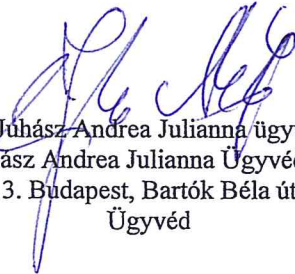 Juhász Andrea Julianna ügy
ász Andrea Julianna Ügyvéd
3. Budapest, Bartók Béla út
Ügyvéd